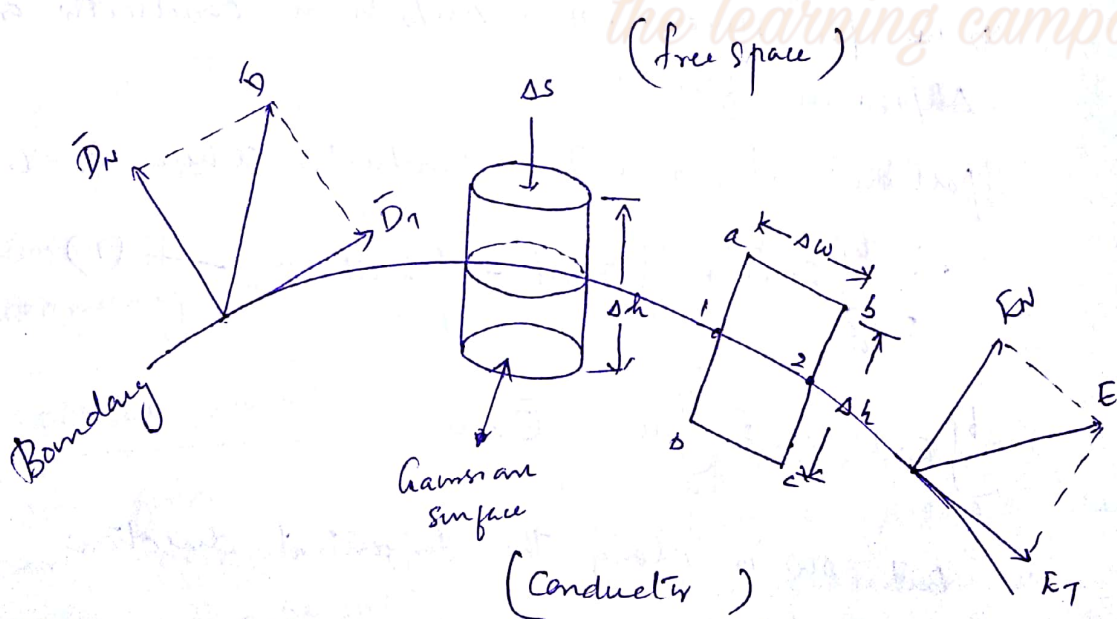 the learning camp
(free space)
ΔS
D̄
D̄N
D̄T
Δh
a
Δw
b
1
2
Δh
D
c
EN
E
ET
Boundary
Gaussian
surface
(Conductor)